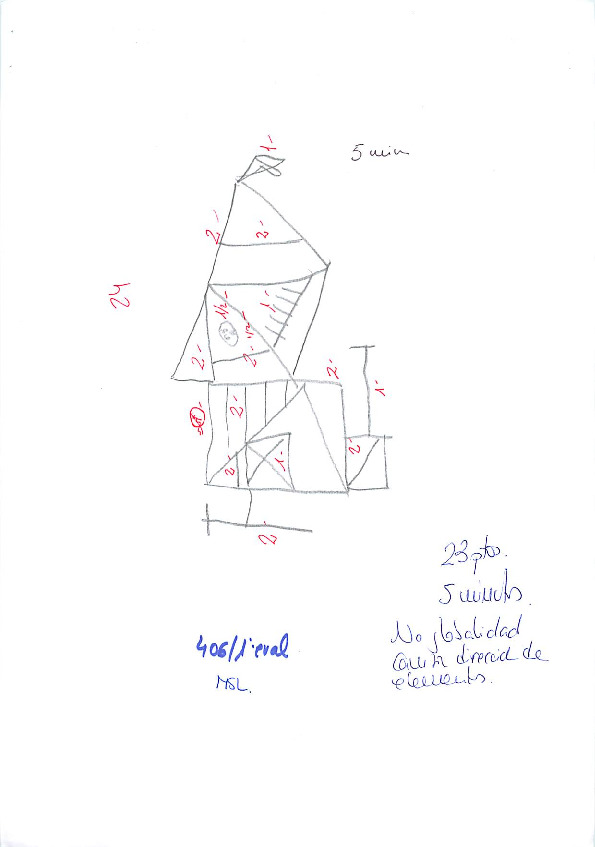 1-
5 min
2-
2-
24
1/2-
1-
1/2-
2-
2-
2-
1-
2-
2-
2-
1-
2-
23 ptos.
5 minutos.
No globalidad
dirección de
elementos.
406/1ªeval
MSL.